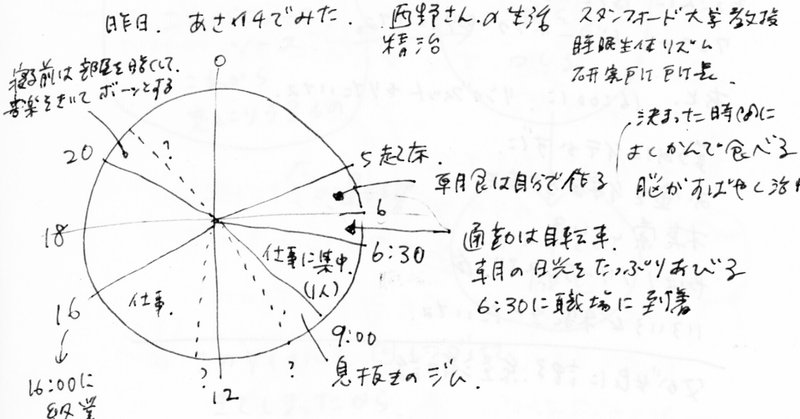 昨日、あさイチでみた、西野さんの生活 スタンフォード大学教授
精治 睡眠生体リズム
研究所 所長
寝る前は部屋を暗くして、
音楽をきいてボーッとする
0
20
?
5 起床.
朝食は自分で作る
決まった時間に
よくかんで食べる
脳がすばやく活
6
18
6:30
通勤は自転車.
朝の日光をたっぷりあびる
6:30に職場に到着
仕事に集中
(1人)
仕事.
16
9:00
息抜きのジム.
?
?
12
16:00に
終業